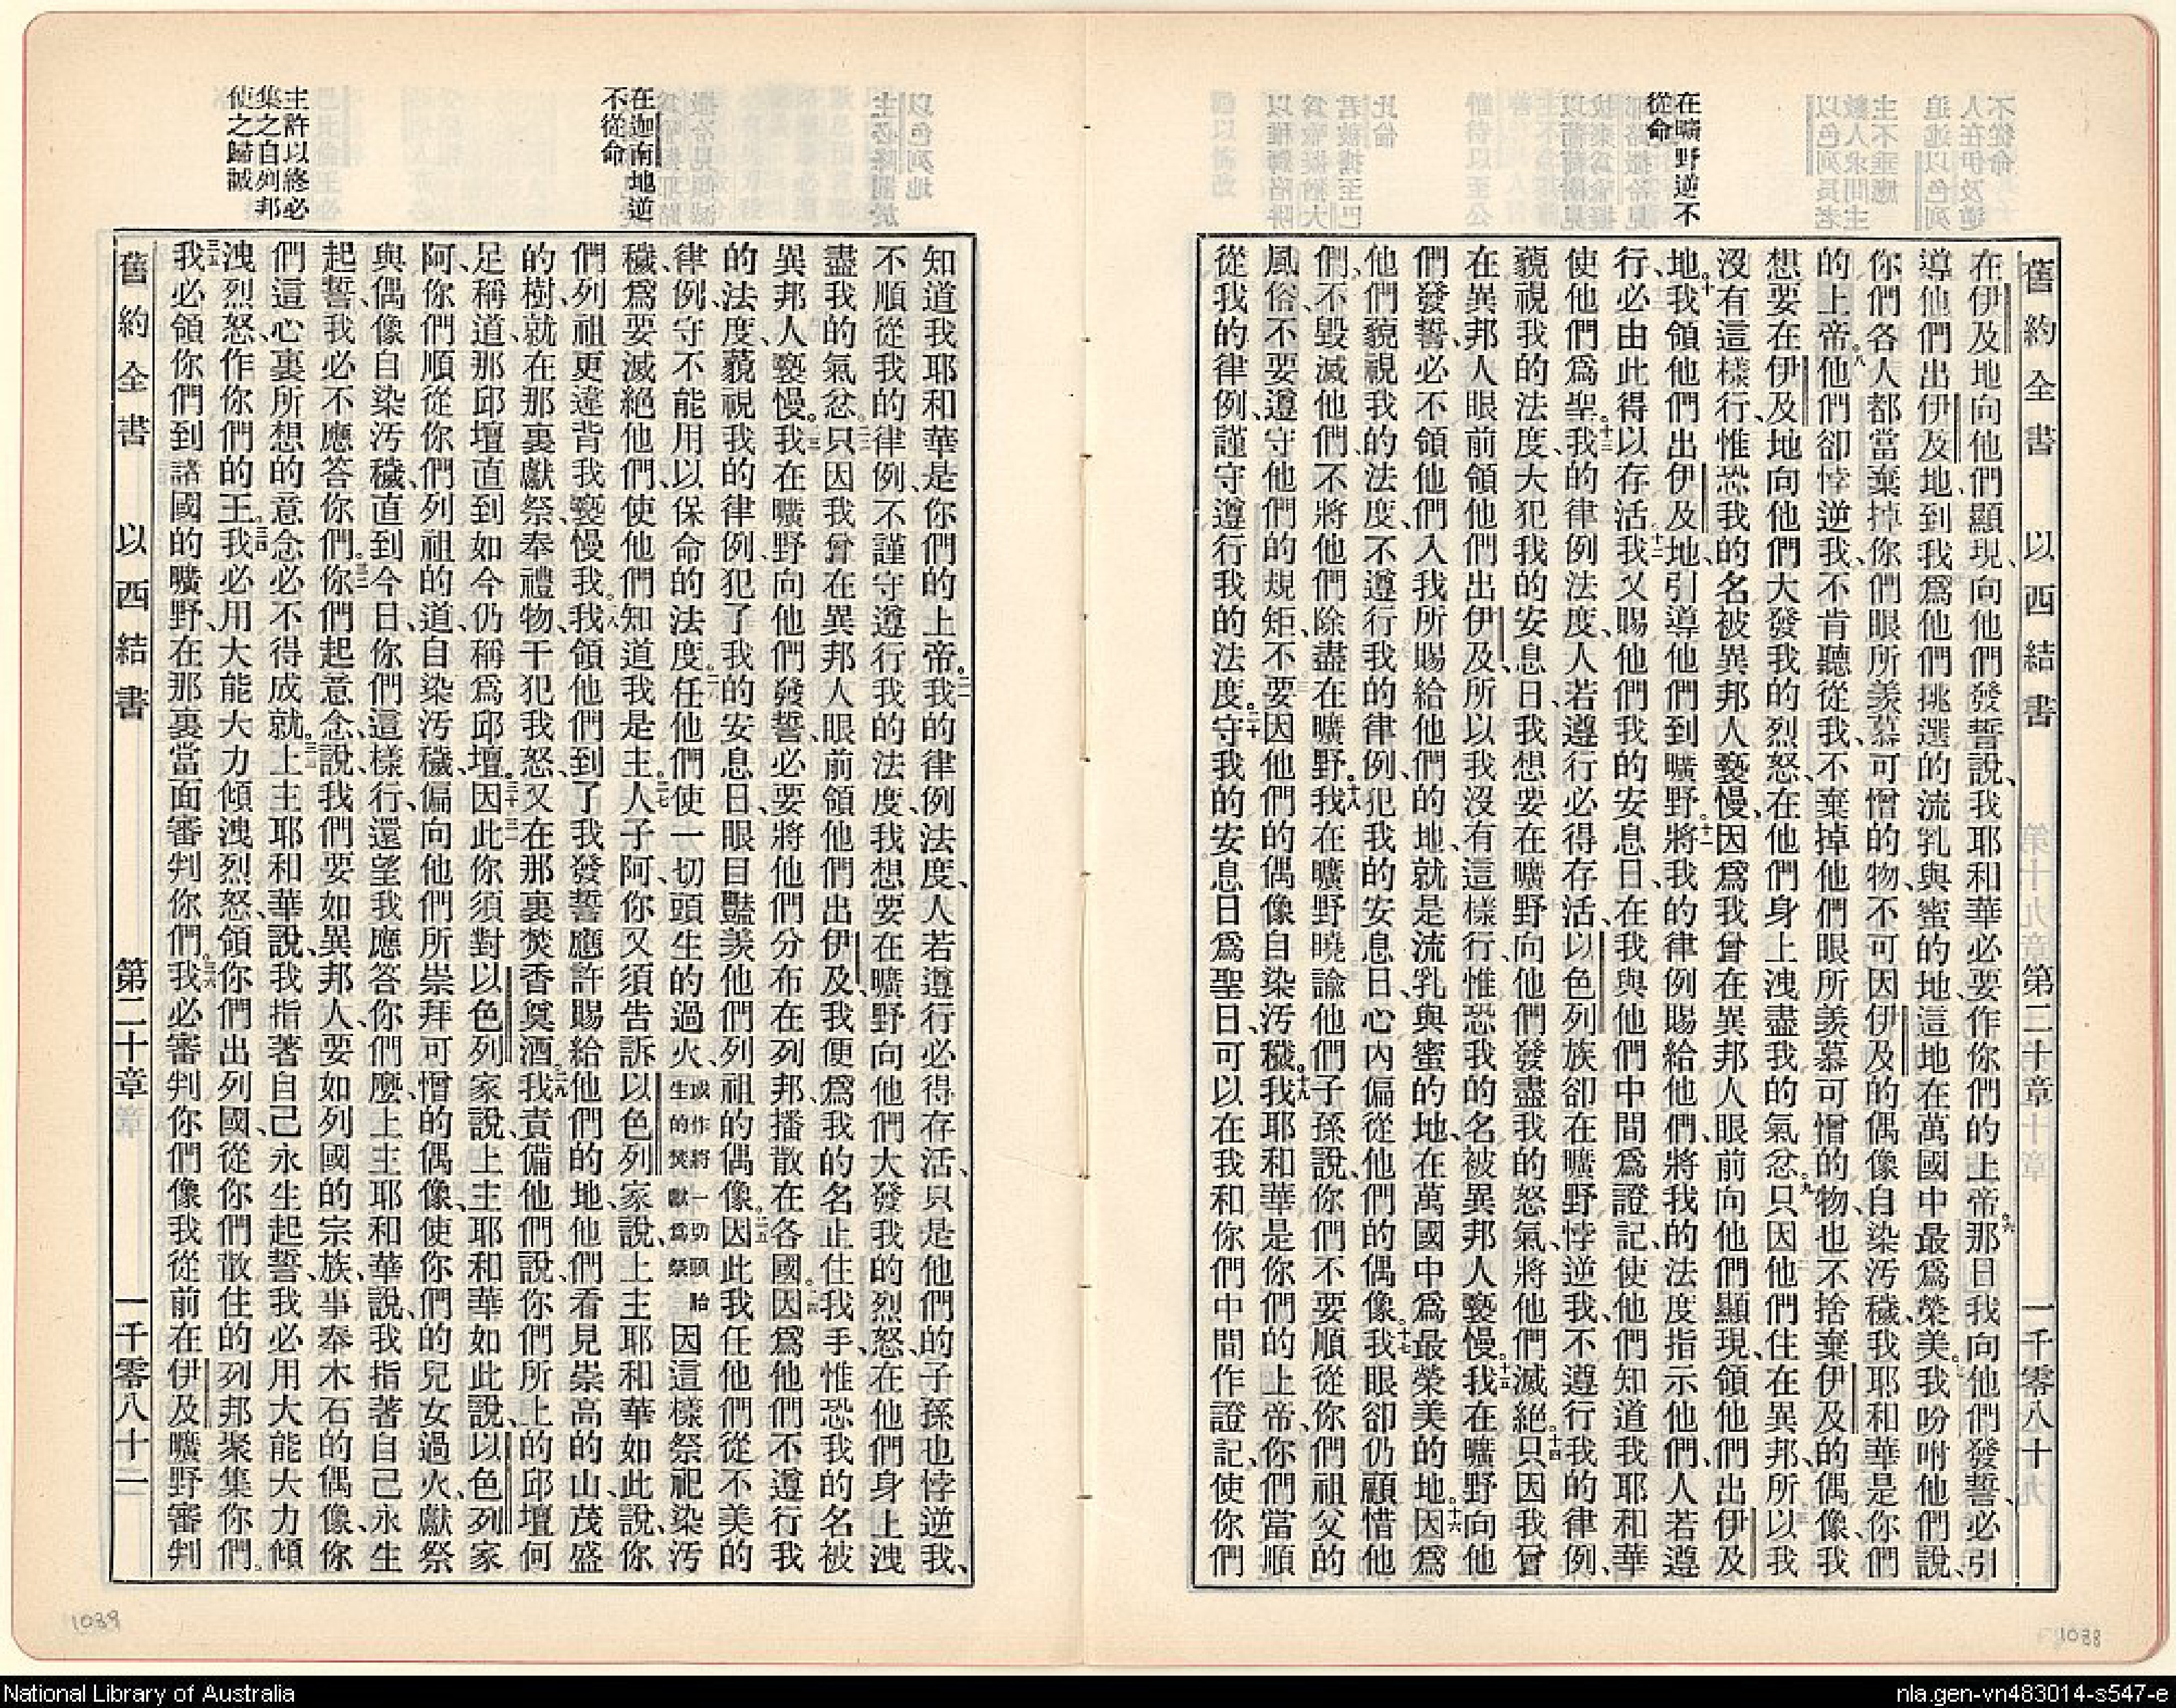 在曠野逆不
從命
舊約全書 以西結書 第二十章 一千零八十
在伊及地向他們顯現、向他們發誓說、我耶和華必要作你們的上帝。六那日我向他們發誓、必引
導他們出伊及地、到我爲他們挑選的流乳與蜜的地、這地在萬國中最爲榮美。七我吩咐他們說、
你們各人都當棄掉你們眼所羨慕可憎的物、不可因伊及的偶像自染汚穢、我耶和華是你們
的上帝。八他們卻悖逆我、不肯聽從我、不棄掉他們眼所羨慕可憎的物、也不捨棄伊及的偶像、我
想要在伊及地向他們大發我的烈怒、在他們身上洩盡我的氣忿。九只因他們住在異邦、所以我
沒有這樣行、惟恐我的名被異邦人褻慢、因爲我曾在異邦人眼前向他們顯現、領他們出伊及
地。十我領他們出伊及地、引導他們到曠野。十一將我的律例賜給他們、將我的法度指示他們、人若遵
行、必由此得以存活。十二我又賜他們我的安息日、在我與他們中間爲證記、使他們知道我耶和華
使他們爲聖。十三我的律例法度、人若遵行必得存活、以色列族卻在曠野悖逆我、不遵行我的律例、
藐視我的法度、大犯我的安息日、我想要在曠野向他們發盡我的怒氣、將他們滅絕。十四只因我曾
在異邦人眼前領他們出伊及、所以我沒有這樣行、惟恐我的名被異邦人褻慢。十五我在曠野向他
們發誓、必不領他們入我所賜給他們的地、就是流乳與蜜的地、在萬國中爲最榮美的地。十六因爲
他們藐視我的法度、不遵行我的律例、犯我的安息日、心內偏從他們的偶像。十七我眼卻仍顧惜他
們、不毀滅他們、不將他們除盡在曠野。十八我在曠野曉諭他們子孫說、你們不要順從你們祖父的
風俗、不要遵守他們的規矩、不要因他們的偶像自染汚穢。十九我耶和華是你們的上帝、你們當順
從我的律例、謹守遵行我的法度。二十守我的安息日爲聖日、可以在我和你們中間作證記、使你們
在迦南地逆
不從命
主許以終必
集之自列邦
使之歸誠
知道我耶和華是你們的上帝。二一我的律例法度、人若遵行必得存活、只是他們的子孫也悖逆我、
不順從我的律例、不謹守遵行我的法度、我想要在曠野向他們大發我的烈怒、在他們身上洩
盡我的氣忿。二二只因我曾在異邦人眼前領他們出伊及、我便爲我的名止住我手、惟恐我的名被
異邦人褻慢。二三我在曠野向他們發誓、必要將他們分布在列邦、播散在各國。二四因爲他們不遵行我
的法度、藐視我的律例、犯了我的安息日、眼目豔羨他們列祖的偶像。二五因此我任他們從不美的
律例、守不能用以保命的法度。二六任他們使一切頭生的過火、或作將一切頭胎生的焚獻爲祭因這樣祭祀染汚
穢、爲要滅絕他們、使他們知道我是主。二七人子阿、你又須告訴以色列家說、上主耶和華如此說、你
們列祖更違背我、褻慢我。二八我領他們到了我發誓應許賜給他們的地、他們看見崇高的山、茂盛
的樹、就在那裏獻祭、奉禮物、干犯我怒、又在那裏焚香奠酒。二九我責備他們說、你們所上的邱壇何
足稱道、那邱壇直到如今仍稱爲邱壇。三十三一因此你須對以色列家說、上主耶和華如此說、以色列家
阿、你們順從你們列祖的道、自染汚穢、偏向他們所崇拜可憎的偶像、使你們的兒女過火、獻祭
與偶像、自染汚穢、直到今日、你們這樣行、還望我應答你們麽、上主耶和華說、我指著自己永生
起誓、我必不應答你們。三二你們起意念說、我們要如異邦人、要如列國的宗族、事奉木石的偶像、你
們這心裏所想的意念、必不得成就。三三上主耶和華說、我指著自己永生起誓、我必用大能大力傾
洩烈怒、作你們的王。三四我必用大能大力傾洩烈怒、領你們出列國、從你們散住的列邦聚集你們。
三五我必領你們到諸國的曠野、在那裏當面審判你們。三六我必審判你們、像我從前在伊及曠野審判
舊約全書 以西結書 第二十章 一千零八十一
1039
1038
National Library of Australia
nla.gen-vn483014-s547-e